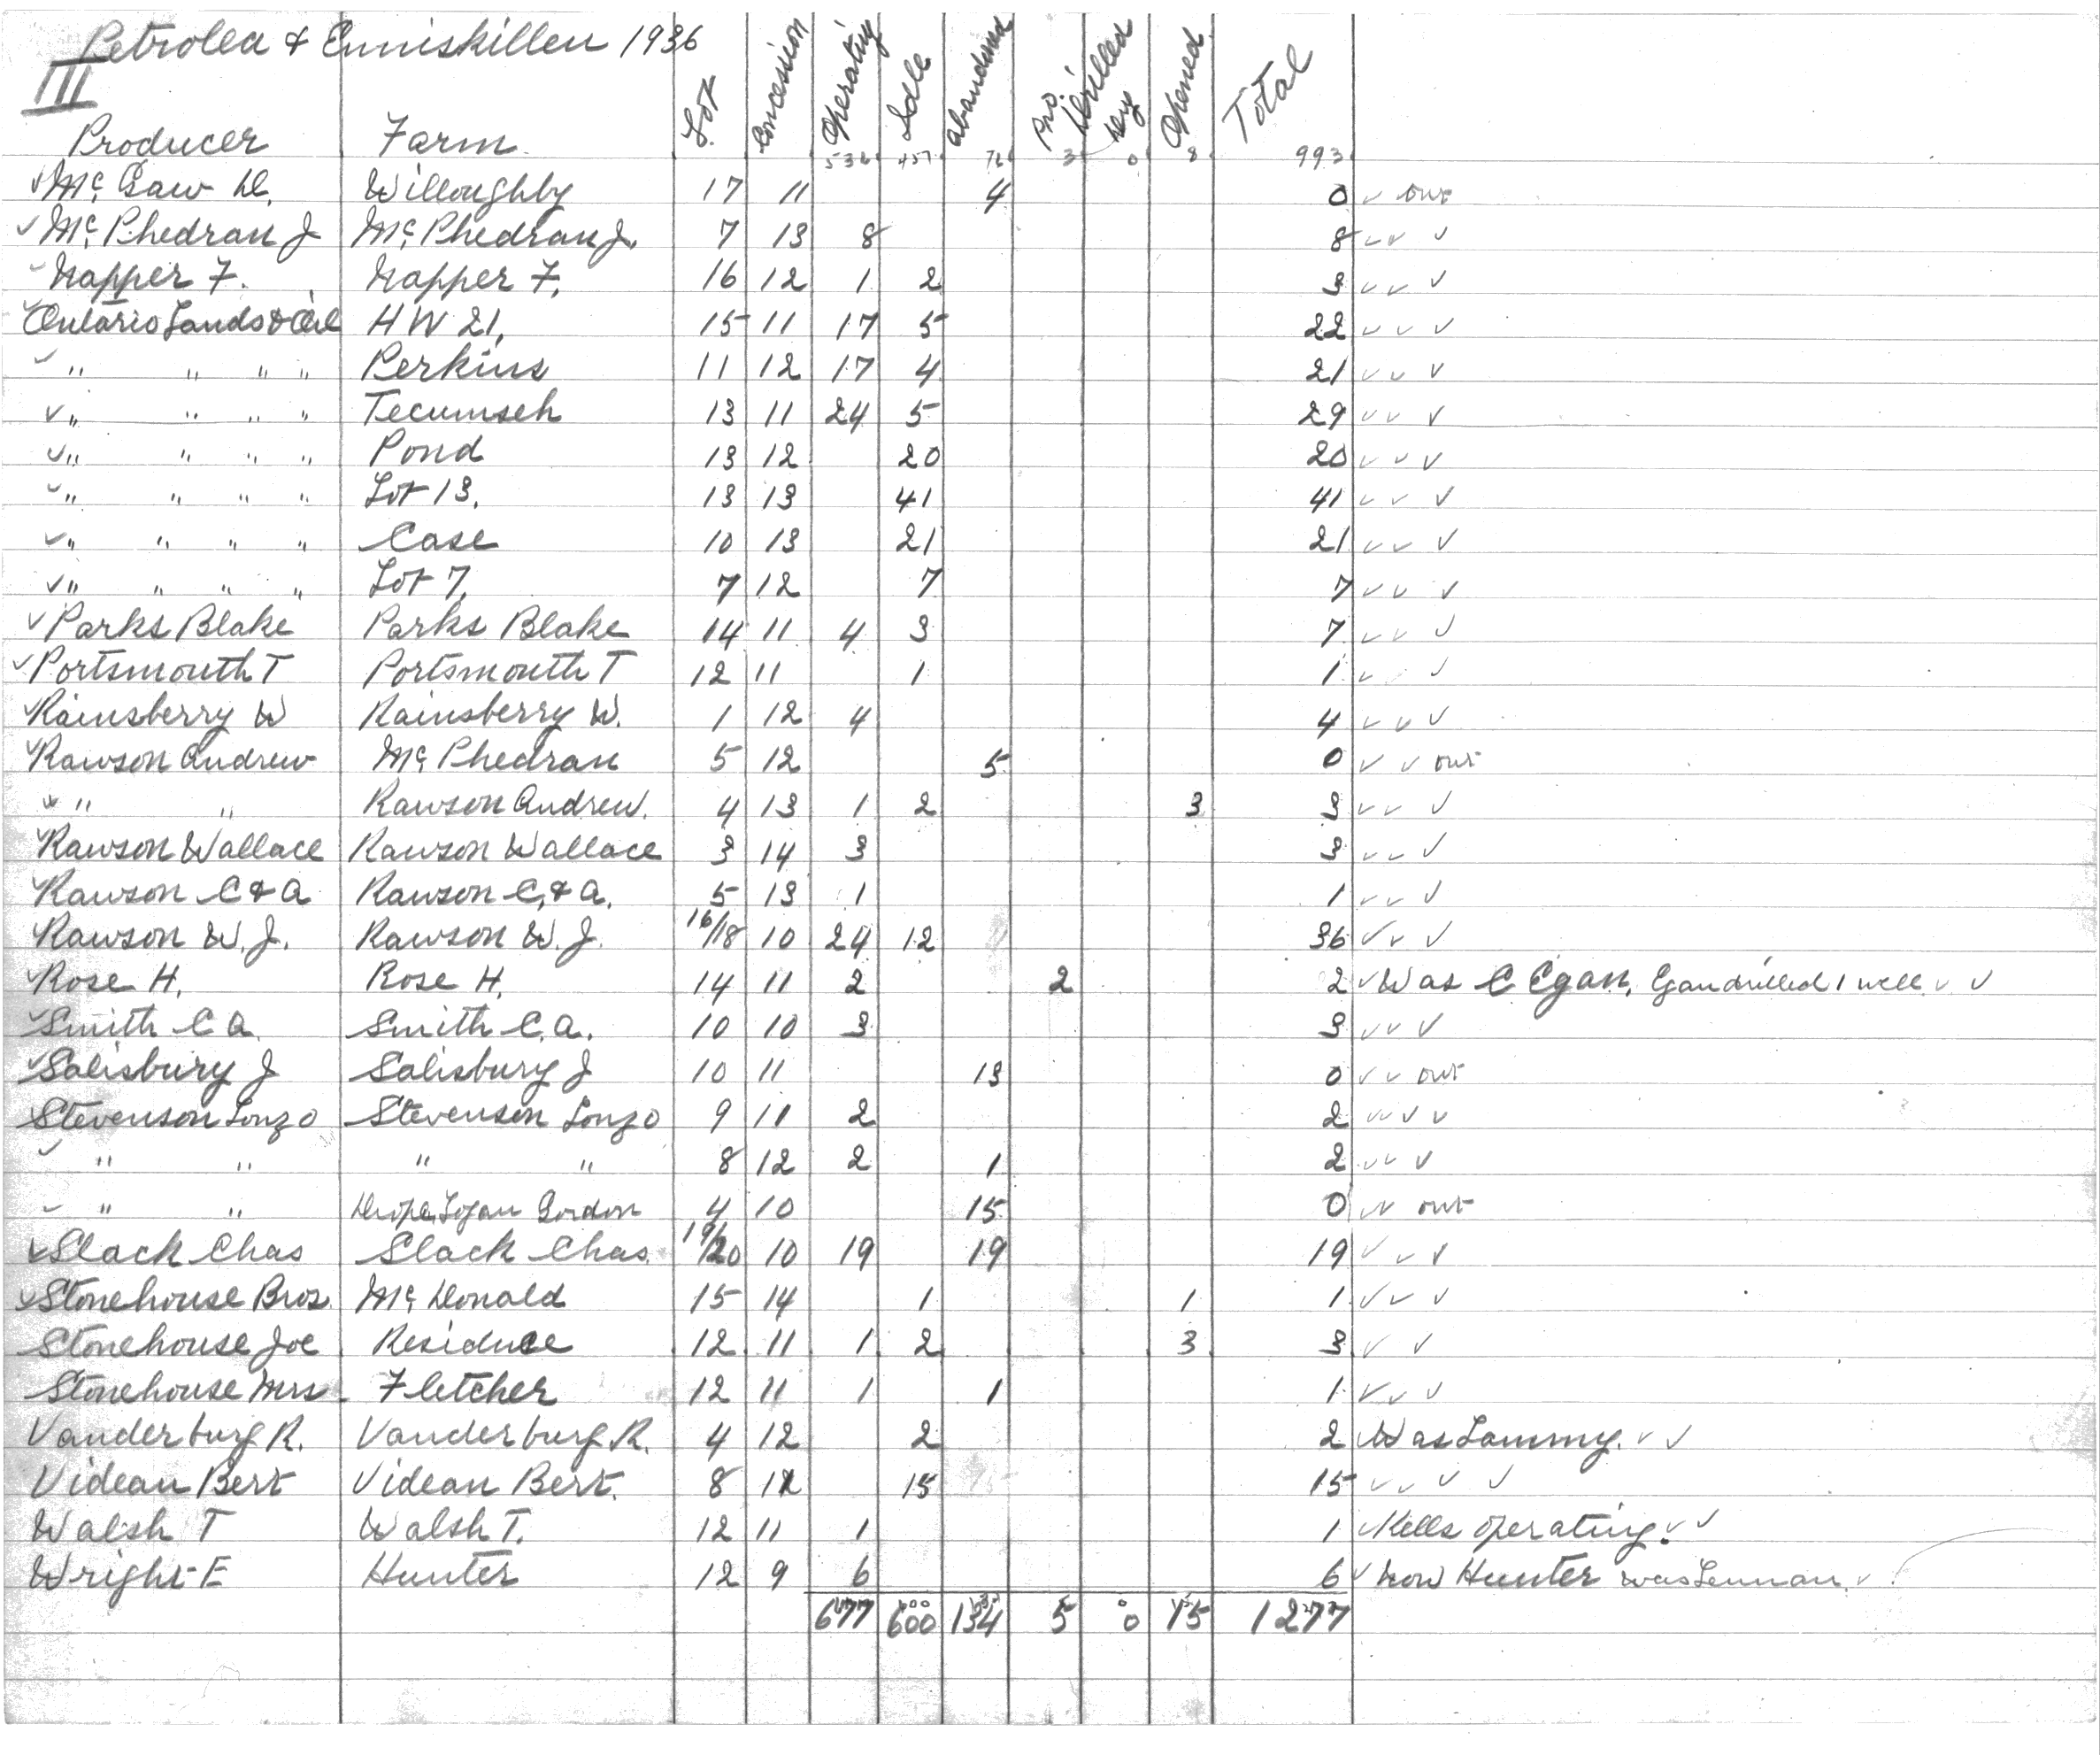 Petrolea & Enniskillen 1936
III
Producer Farm Lot Concession Operating Idle Abandoned Pro. Drilled Dry Opened Total
536 457 76 3 0 8 993
✓ Mc Gaw D. Willoughby 17 11 4 0 ✓ out
✓ Mc Phedran J Mc Phedran J. 7 13 8 8 ✓ ✓ ✓
✓ Napper F. Napper F. 16 12 1 2 3 ✓ ✓ ✓
✓ Ontario Lands & Oil H W 21, 15 11 17 5 22 ✓ ✓ ✓
✓ " " " " Perkins 11 12 17 4 21 ✓ ✓ ✓
✓ " " " " Tecumseh 13 11 24 5 29 ✓ ✓ ✓
✓ " " " " Pond 13 12 20 20 ✓ ✓ ✓
✓ " " " " Lot 13. 13 13 41 41 ✓ ✓ ✓
✓ " " " " Case 10 13 21 21 ✓ ✓ ✓
✓ " " " " Lot 7. 7 12 7 7 ✓ ✓ ✓
✓ Parks Blake Parks Blake 14 11 4 3 7 ✓ ✓ ✓
✓ Portsmouth T Portsmouth T 12 11 1 1 ✓ ✓ ✓
✓ Rainsberry W Rainsberry W. 1 12 4 4 ✓ ✓ ✓
✓ Rawson Andrew Mc Phedran 5 12 5 0 ✓ ✓ out
✓ " " Rawson Andrew. 4 13 1 2 3 3 ✓ ✓ ✓
✓ Rawson Wallace Rawson Wallace 3 14 3 3 ✓ ✓ ✓
✓ Rawson C & A Rawson C. & A. 5 13 1 1 ✓ ✓ ✓
✓ Rawson W. J. Rawson W. J. 16/18 10 24 12 36 ✓ ✓ ✓
✓ Rose H. Rose H. 14 11 2 2 2 ✓ Was C Egan, Egan drilled 1 well ✓ ✓
✓ Smith C A Smith C. A. 10 10 3 3 ✓ ✓ ✓
✓ Salisbury J Salisbury J 10 11 13 0 ✓ ✓ out
✓ Stevenson Lonzo Stevenson Lonzo 9 11 2 2 ✓ ✓ ✓
✓ " " " " 8 12 2 1 2 ✓ ✓ ✓
✓ " " Logan Gordon 4 10 15 0 ✓ ✓ out
✓ Slack Chas Slack Chas. 19/20 10 19 19 19 ✓ ✓ ✓
✓ Stonehouse Bros. Mc Donald 15 14 1 1 1 ✓ ✓ ✓
Stonehouse Joe Residuce 12 11 1 2 3 3 ✓ ✓
Stonehouse Mrs Fletcher 12 11 1 1 1 ✓ ✓ ✓
Vanderburg R. Vanderburg R. 4 12 2 2 Was Lammy. ✓ ✓
Videan Bert Videan Bert. 8 12 15 15 ✓ ✓ ✓ ✓
Walsh T Walsh T. 12 11 1 1 ✓ Kells operating. ✓ ✓
Wright E Hunter 12 9 6 6 ✓ Now Hunter was Lennan. ✓
677 600 134 5 0 15 1277